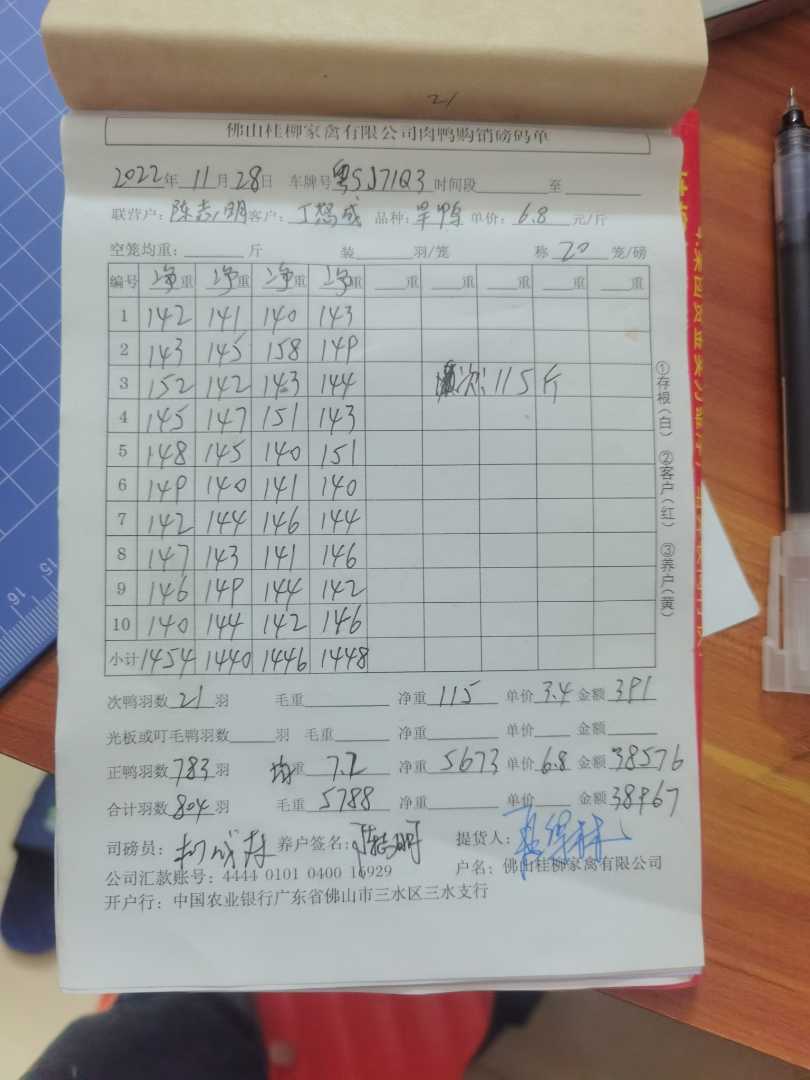 21
佛山桂柳家禽有限公司肉鸭购销磅码单
2022年 11月28日 车牌号粤SJ71Q3 时间段 至
联营户:陈志明 客户:丁 成 品种: 鸭 单价:6.8 元/斤
空笼均重: 斤 装 羽/笼 称 20 笼/磅
编号 净重 净重 净重 净重 重 重 重 重 重
1 142 141 140 143
2 143 145 158 149
3 152 142 143 144 次:115斤
4 145 147 151 143
5 148 145 140 151
6 149 140 141 140
7 142 144 146 144
8 147 143 141 146
9 146 149 144 142
10 140 144 142 146
小计 1454 1440 1446 1448
次鸭羽数 21 羽 毛重 净重 115 单价 3.4 金额 391
光板或叮毛鸭羽数 羽 毛重 净重 单价 金额
正鸭羽数 783 羽 均重 7.2 净重 5673 单价 6.8 金额 38576
合计羽数 804 羽 毛重 5788 净重 单价 金额 38967
司磅员: 养户签名:陈志明 提货人:
公司汇款账号:4444 0101 0400 16929 户名:佛山桂柳家禽有限公司
开户行:中国农业银行广东省佛山市三水区三水支行
①存根(白) ②客户(红) ③养户(黄)
15
16